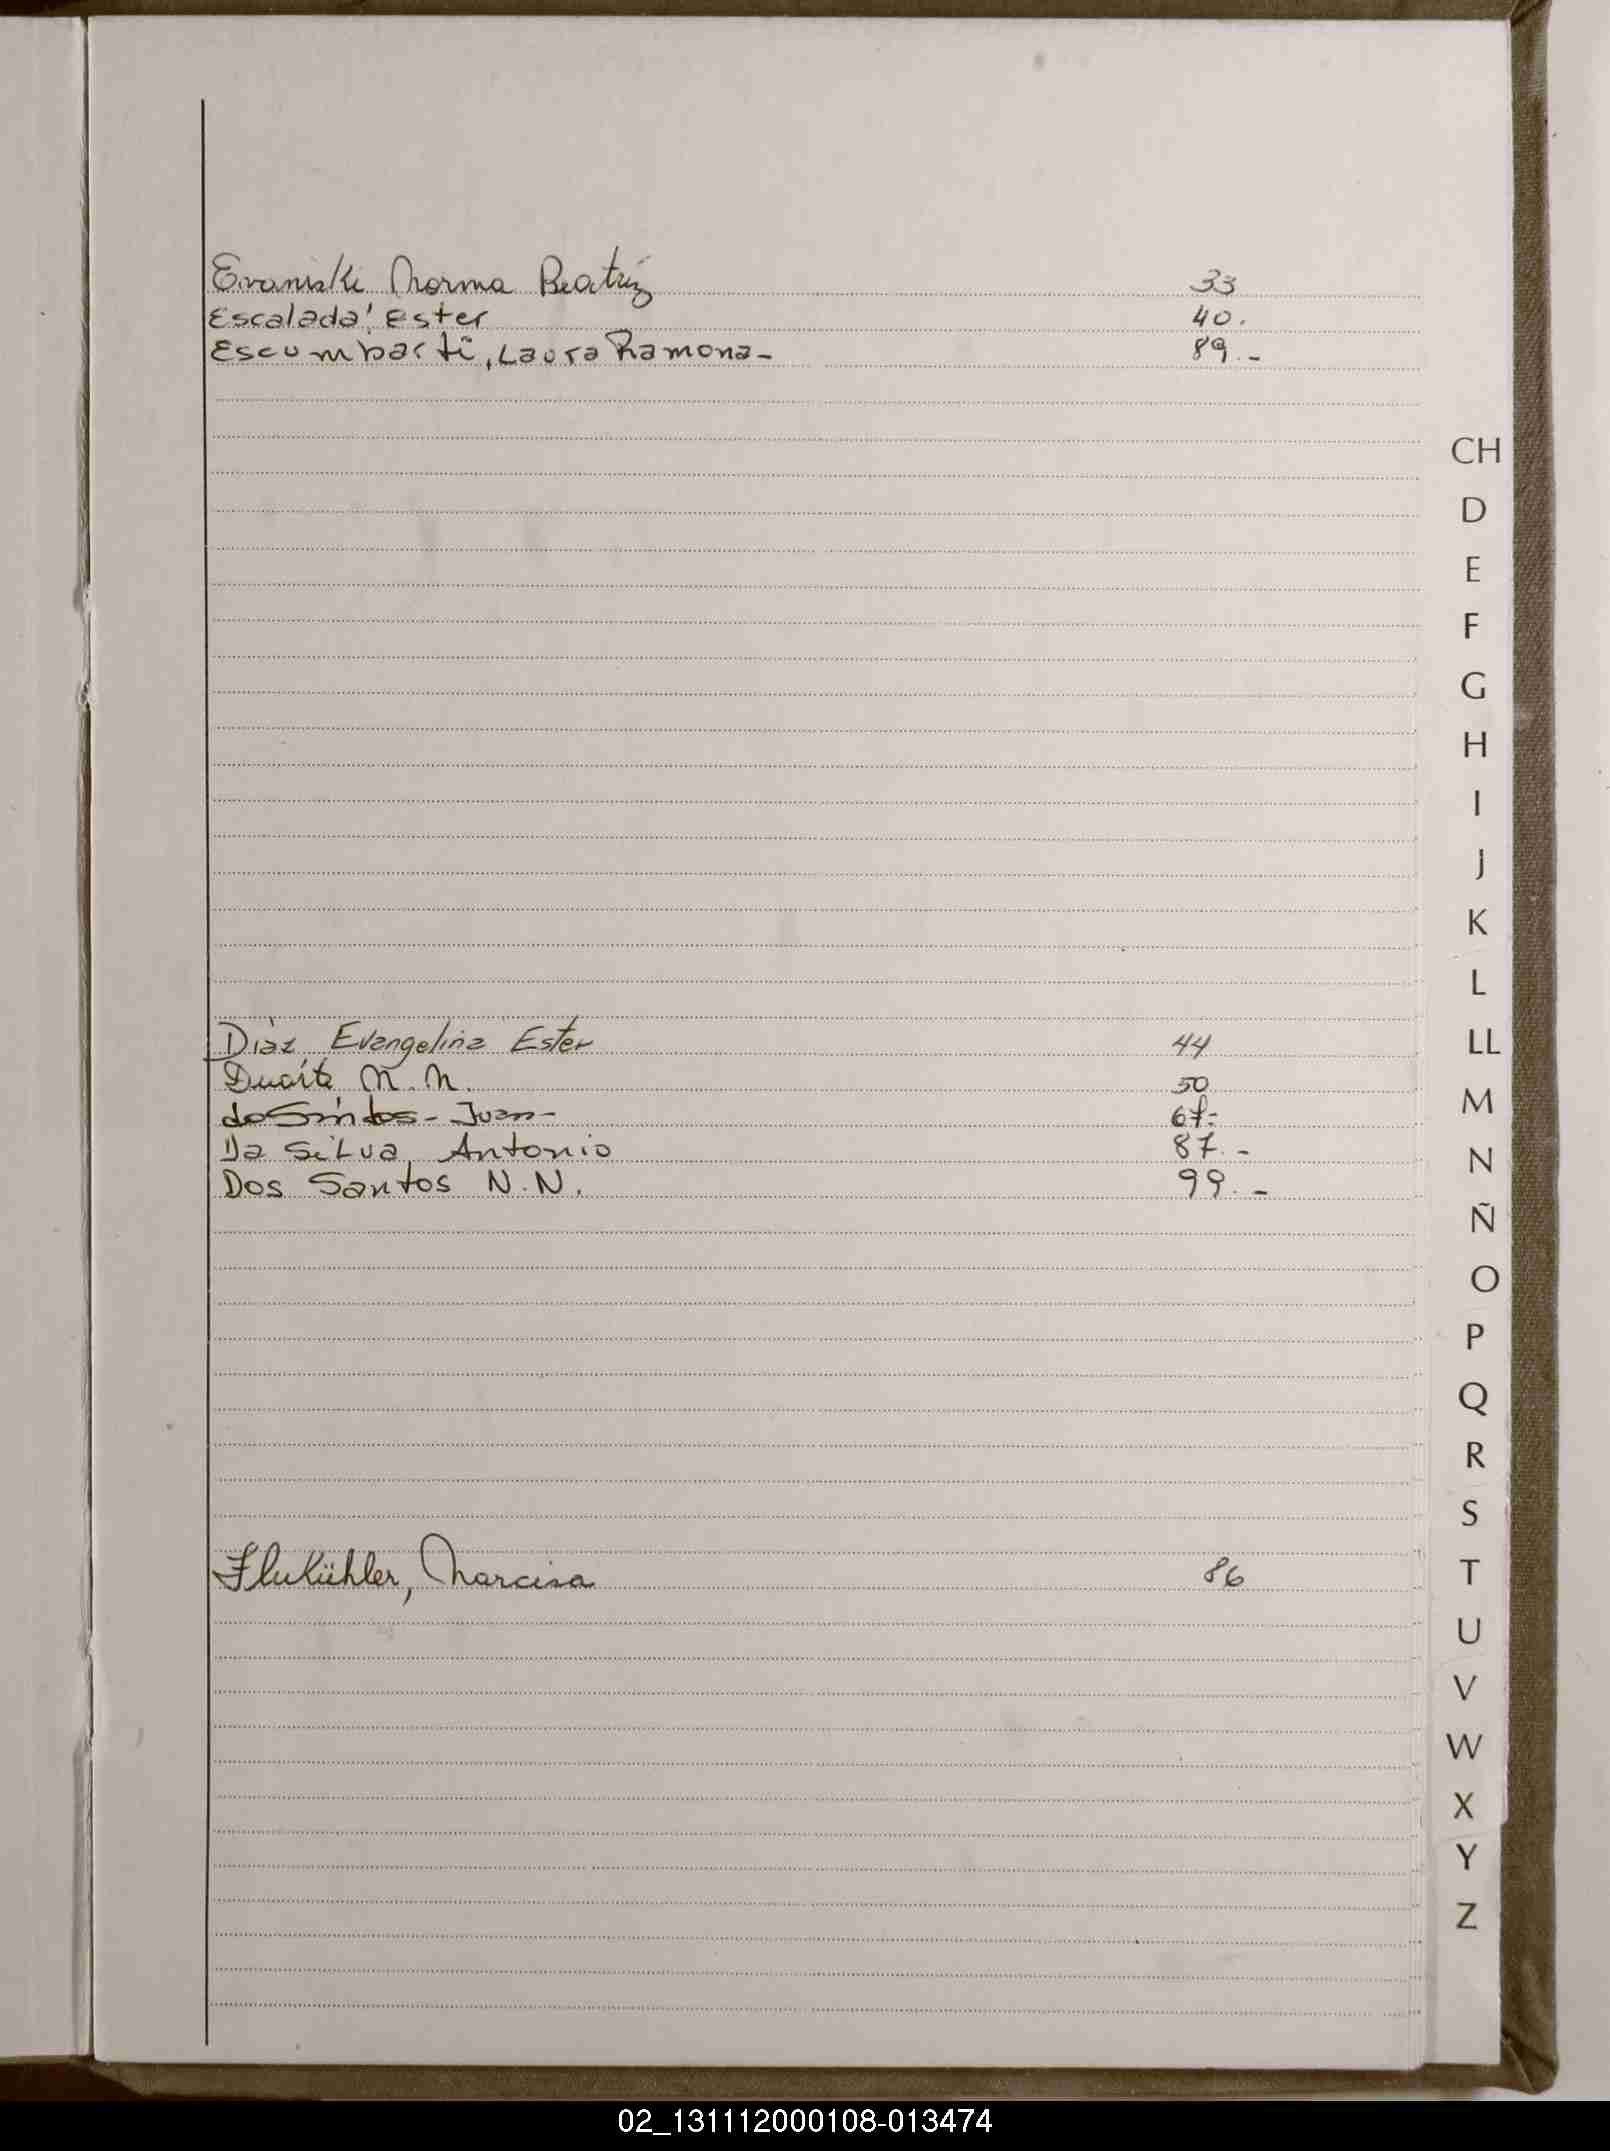 Evaniski Norma Beatriz 33
Escalada, Ester 40.
Escumbarti, Laura Ramona- 89.-
Diaz, Evangelina Ester 44
Duarte N. N. 50
dosSantos- Juan- 67.-
Da Silva, Antonio 87.-
Dos Santos N.N. 99.-
Flukühler, Narcisa 86
CH
D
E
F
G
H
I
J
K
L
LL
M
N
Ñ
O
P
Q
R
S
T
U
V
W
X
Y
Z
02_131112000108-013474